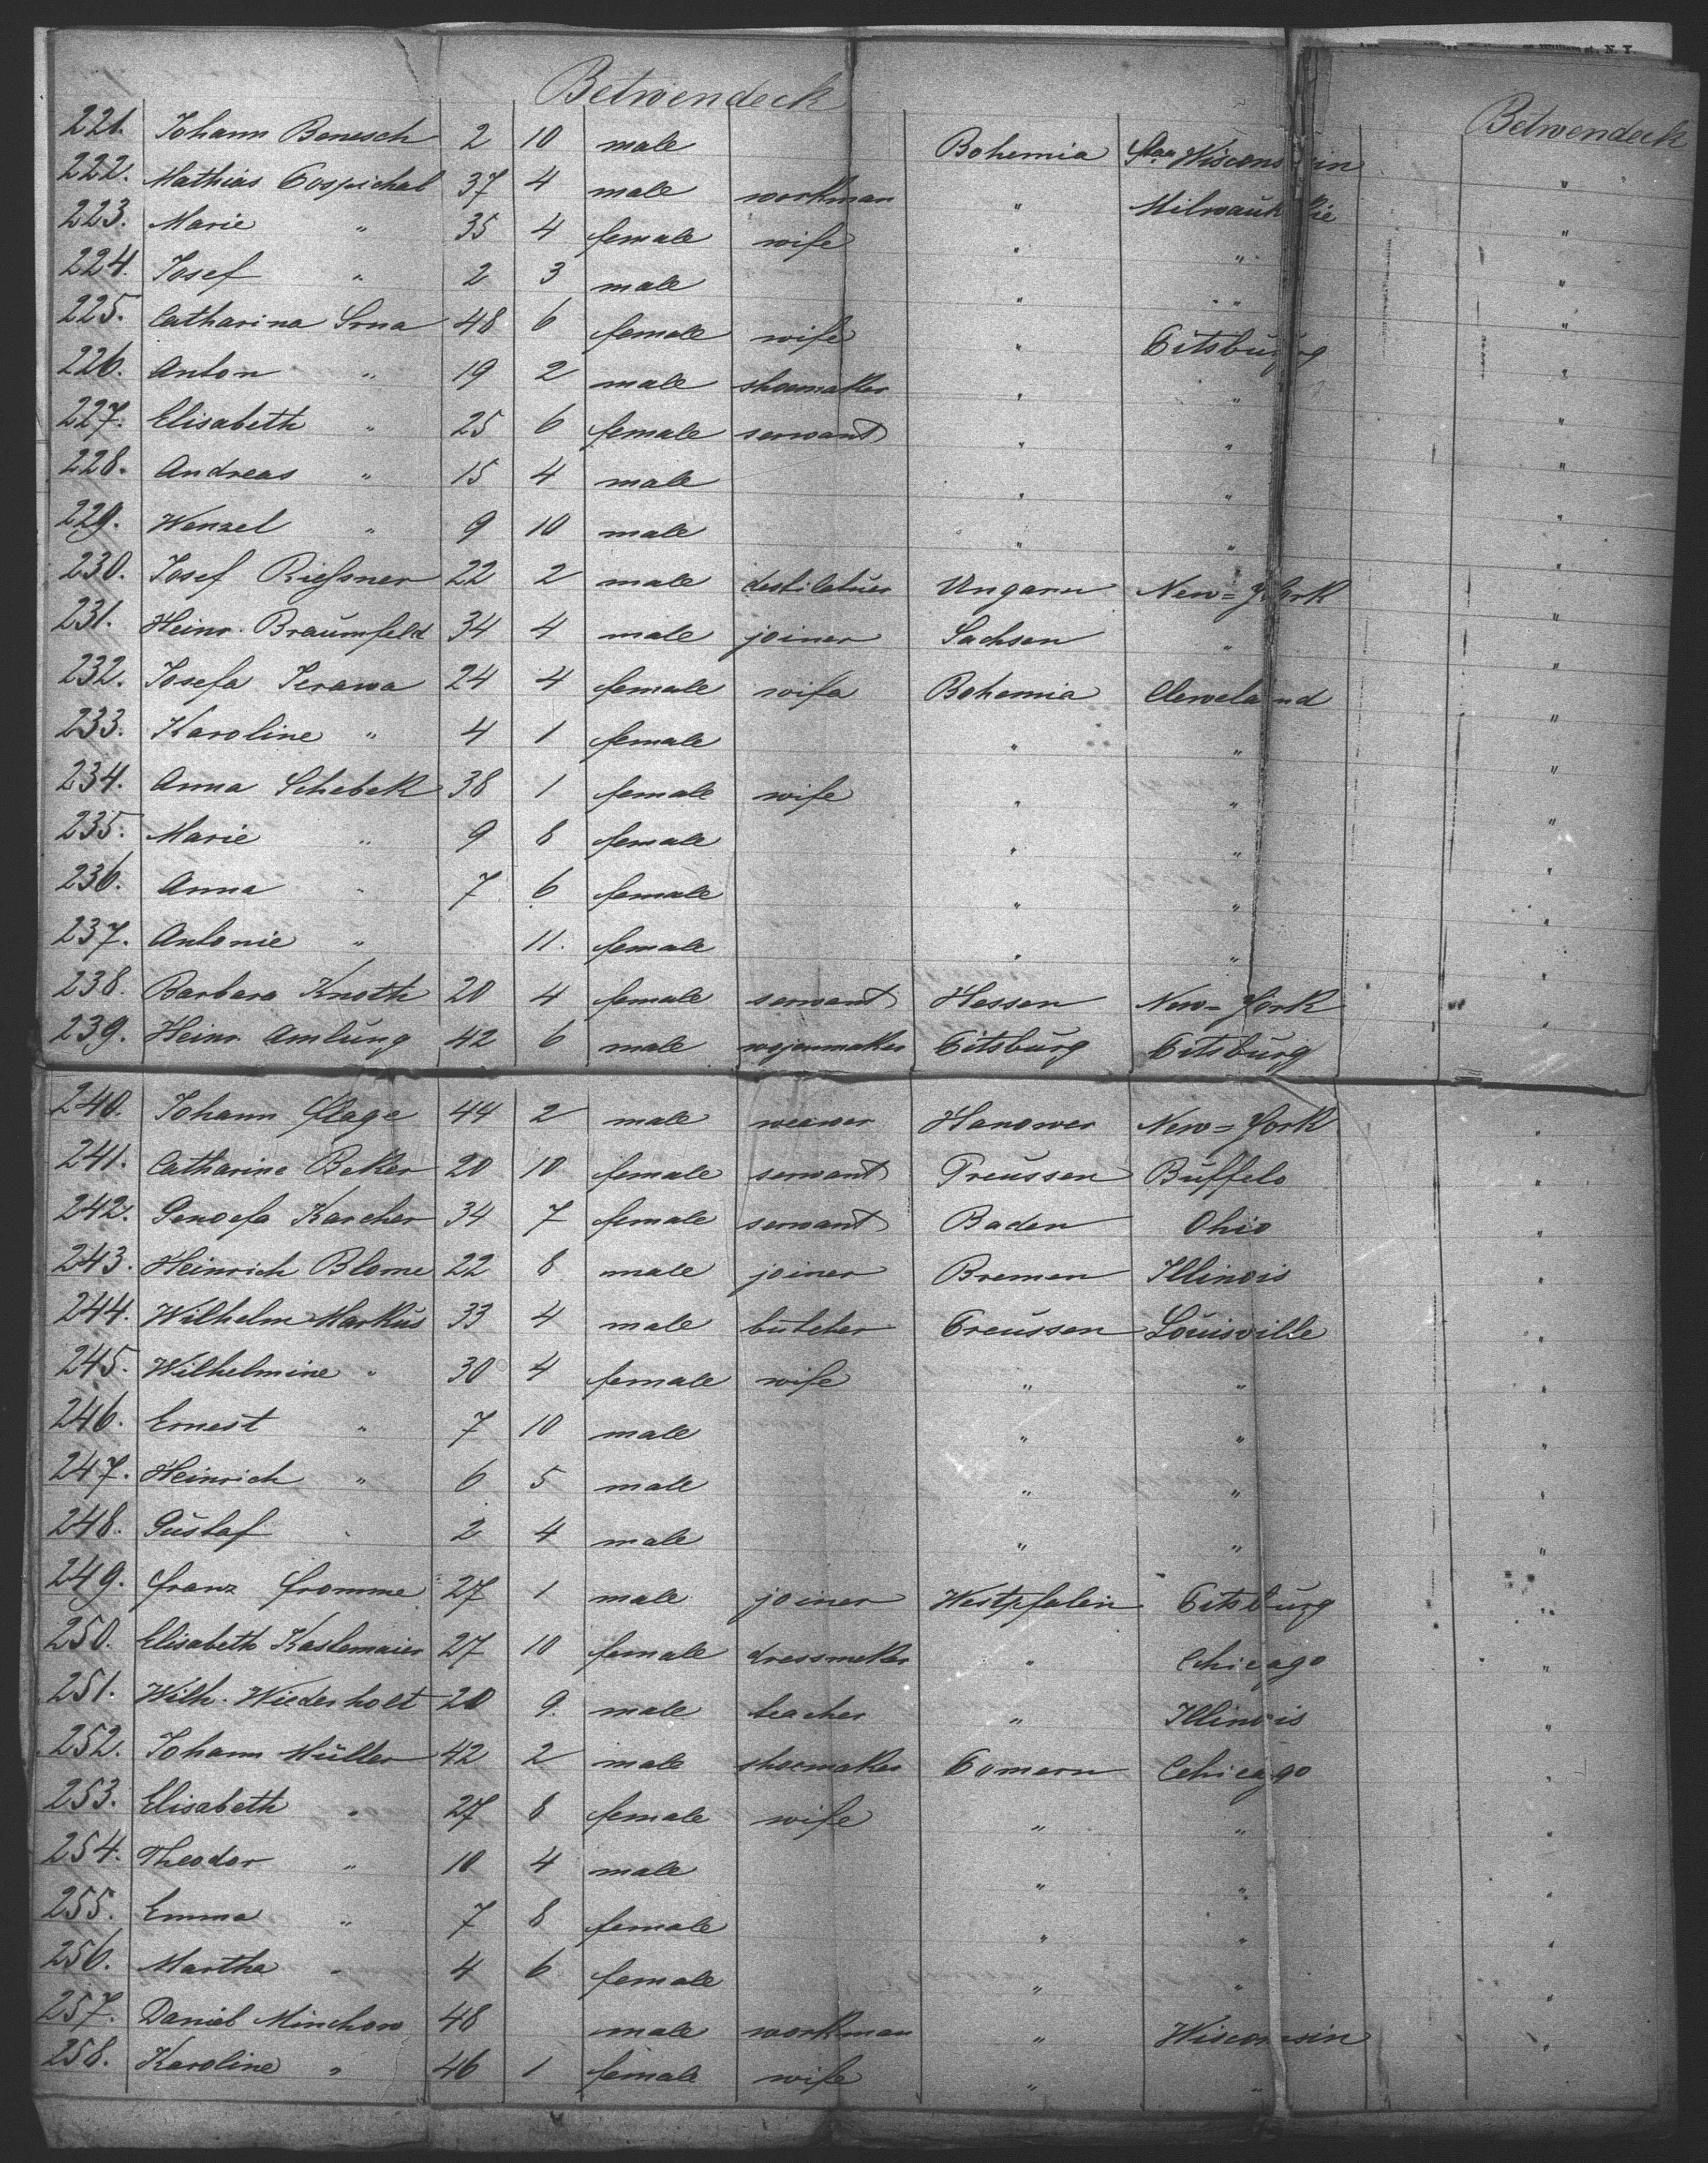 Betwendeck Betwendeck
221. Johann Benesch 2 10 male Bohemia Wisconsin "
222. Mathias Pospichal 37 4 male workman " Milwaukie "
223. Marie " 35 4 female wife " " "
224. Josef " 2 3 male " " "
225. Catharina Srna 48 6 female wife " Pitsburg "
226. Anton " 19 2 male shoemaker " " "
227. Elisabeth " 25 6 female servant " " "
228. Andreas " 15 4 male " " "
229. Wenzel " 9 10 male " " "
230. Josef Rieſsner 22 2 male destilatuer Ungarn New=York "
231. Heinr. Braumfeld 34 4 male joiner Sachsen " "
232. Josefa Jerawa 24 4 female wife Bohemia Cleweland "
233. Karoline " 4 1 female " " "
234. Anna Schebek 38 1 female wife " " "
235. Marie " 9 8 female " " "
236. Anna " 7 6 female " " "
237. Antonie " 11. female " " "
238. Barbara Knoth 20 4 female servant Hessen New=York "
239. Heinr Amlung 42 6 male wagenmaker Pitsburg Pitsburg "
240. Johann Flage 44 2 male weawer Hanower New=York "
241. Catharine Beker 20 10 female servant Preussen Buffelo "
242. Genoefa Karcher 34 7 female servant Baden Ohio "
243. Heinrich Blome 22 8 male joiner Bremen Illinois "
244. Wilhelm Markus 33 4 male butcher Preussen Louisville "
245. Wilhelmine " 30 4 female wife " " "
246. Ernest " 7 10 male " " "
247. Heinrich " 6 5 male " " "
248. Gustaf " 2 4 male " " "
249. Franz Fromme 27 1 male joiner Westpfalen Pitsburg "
250. Elisabeth Kastemaier 27 10 female dressmeker " Chicago "
251. Wilh. Wiederholt 20 9. male teacher " Illinois "
252. Johann Müller 42 2 male shoemaker Pomern Chicago "
253. Elisabeth " 27 8 female wife " " "
254. Theodor " 10 4 male " " "
255. Emma " 7 8 female " " "
256. Martha " 4 6 female " " "
257. Daniel Minchow 48 male workman " Wisconsin "
258. Karoline " 46 1 female wife " "